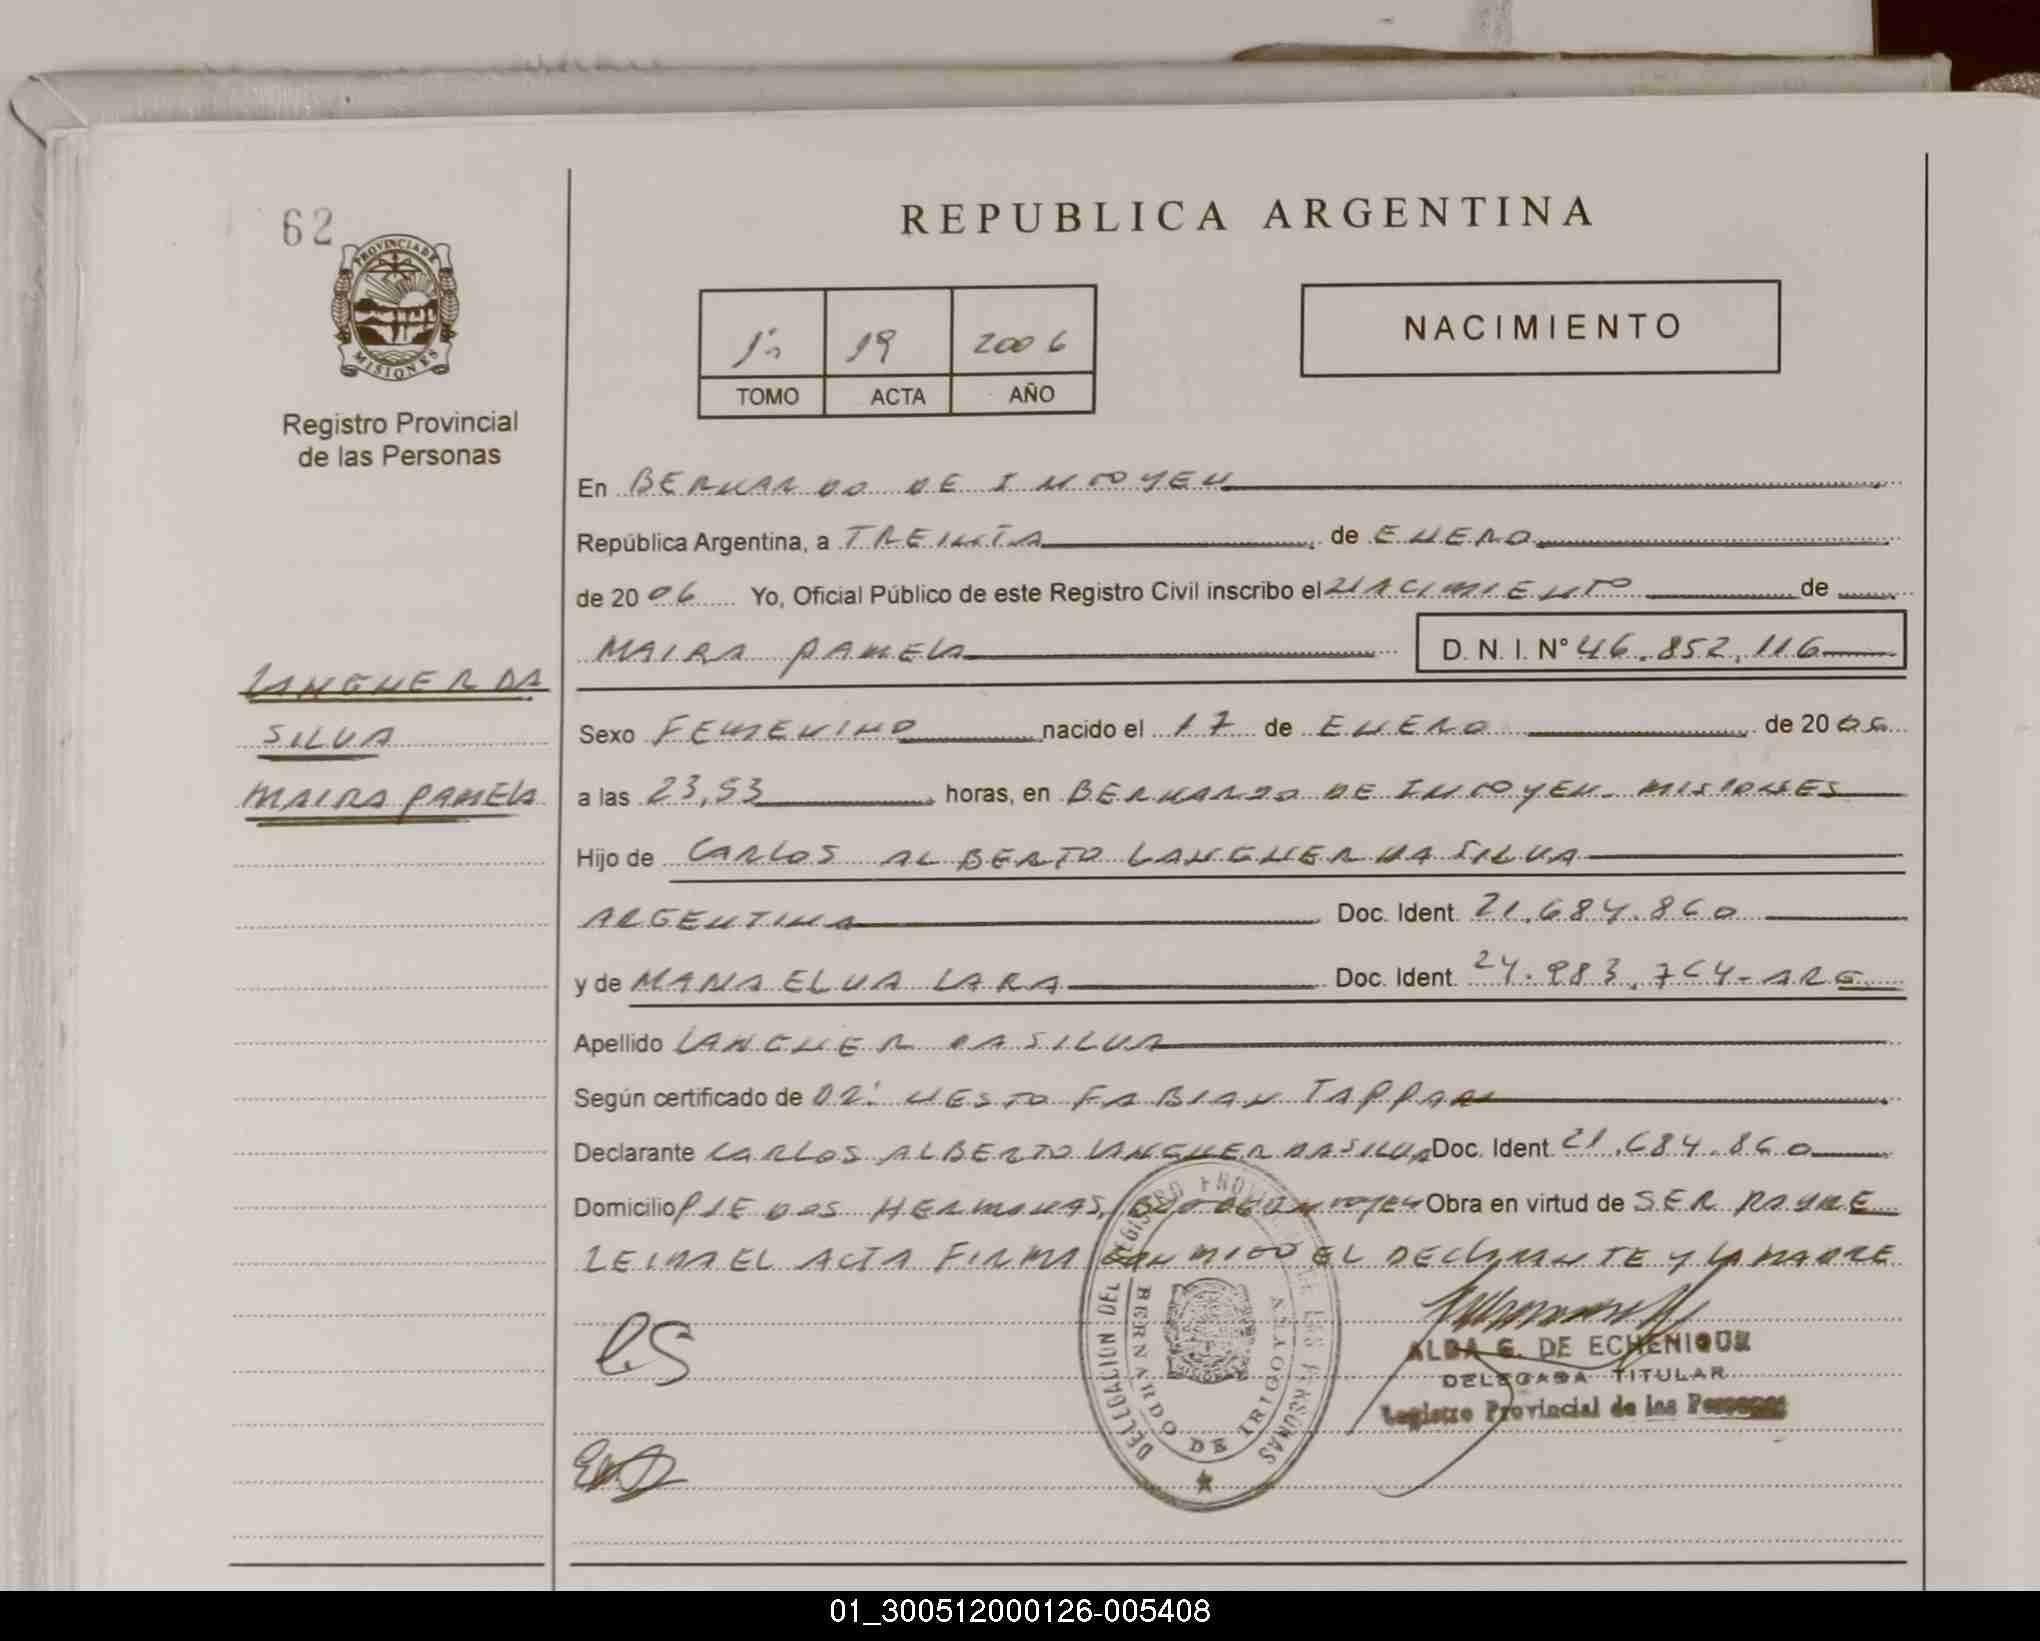 62
PROVINCIA DE
MISIONES
Registro Provincial
de las Personas
REPUBLICA ARGENTINA
1º 19 2006
TOMO ACTA AÑO
NACIMIENTO
En BERNARDO DE IRIGOYEN
República Argentina, a TREINTA de ENERO
de 2006 Yo, Oficial Público de este Registro Civil inscribo el NACIMIENTO de
MAIRA PAMELA D. N. I. Nº 46.852.116
LANGNER DA
SILVA
MAIRA PAMELA
Sexo FEMENINO nacido el 17 de ENERO de 2006
a las 23,53 horas, en BERNARDO DE IRIGOYEN - MISIONES
Hijo de CARLOS ALBERTO LANGNER DA SILVA
ARGENTINA Doc. Ident. 21.684.860
y de MARIA ELVA LARA Doc. Ident. 24.983.764 - ARG
Apellido LANGNER DA SILVA
Según certificado de DR: NESTO FABIAN TAPPARI
Declarante CARLOS ALBERTO LANGNER DA SILVA Doc. Ident. 21.684.860
Domicilio PJE DOS HERMANAS, Obra en virtud de SER PADRE
LEIDA EL ACTA FIRMA CONMIGO EL DECLARANTE Y LA MADRE
DELEGACION DEL REGISTRO PROVINCIAL DE LAS PERSONAS
BERNARDO DE IRIGOYEN
ALBA G. DE ECHENIQUE
DELEGADA TITULAR
Registro Provincial de las Personas
01_300512000126-005408